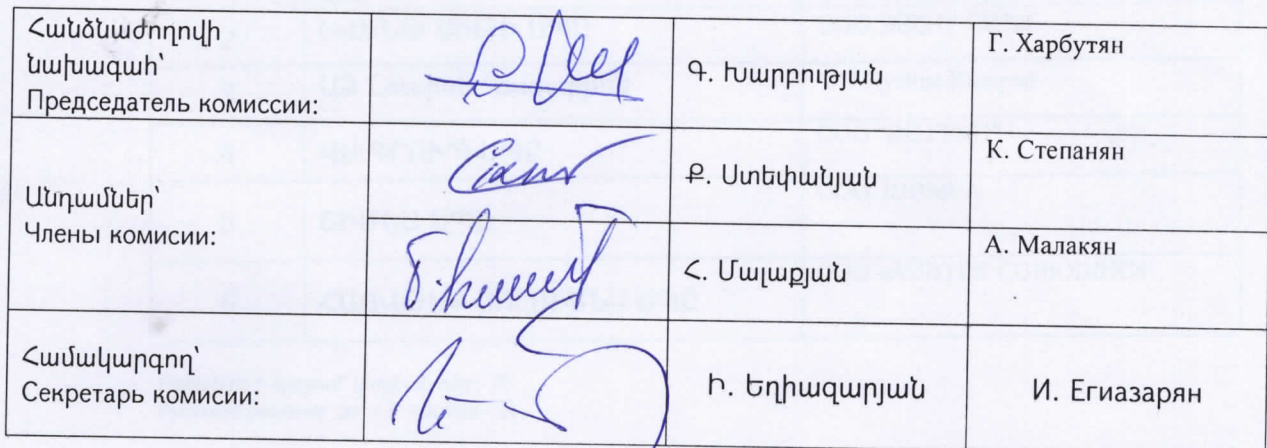 Հանձնաժողովի
նախագահ՝
Председатель комиссии:
Գ. Խարբության
Г. Харбутян
Անդամներ
Члены комисии:
Ք. Ստեփանյան
К. Степанян
Հ. Մալաքյան
А. Малакян
Համակարգող՝
Секретарь комисии:
Ի. Եղիազարյան
И. Егиазарян